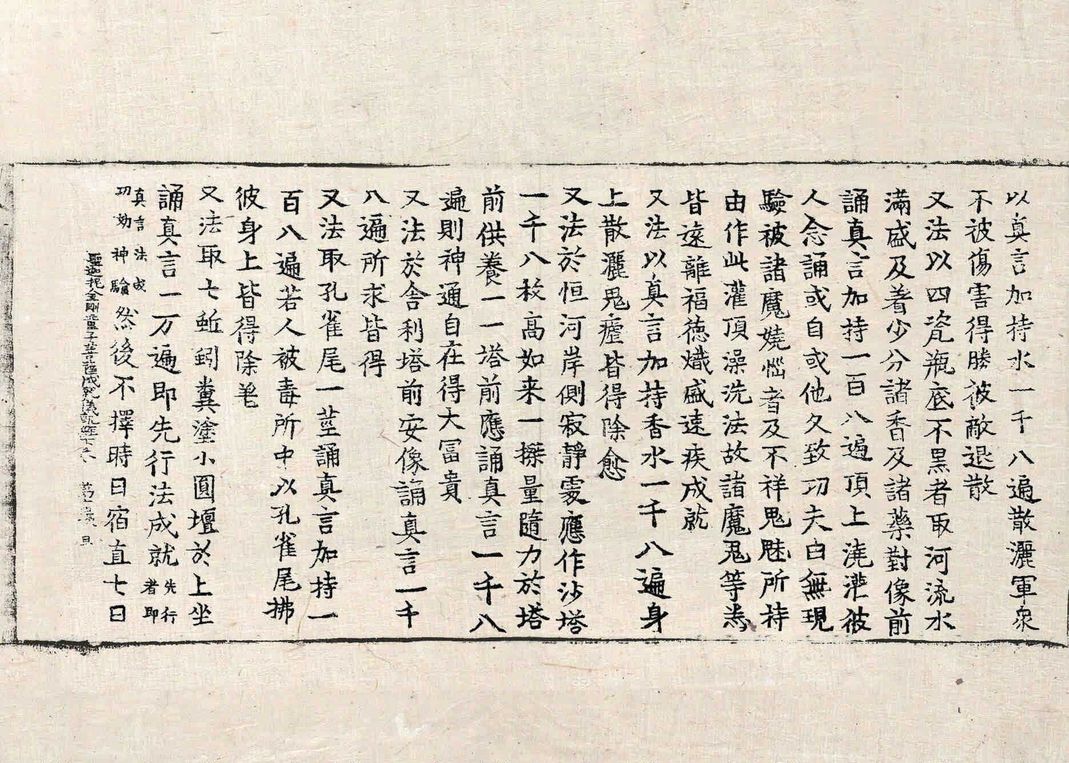 以真言加持水一千八遍散灑軍衆
不被傷害得勝彼敵退散
又法以四瓷瓶底不黑者取河流水
滿盛及著少分諸香及諸藥對像前
誦真言加持一百八遍頂上澆灌彼
人念誦或自或他久致功夫白無現
驗被諸魔嬈惱者及不祥鬼魅所持
由作此灌頂澡洗法故諸魔鬼等為
皆遠離福德熾盛速疾成就
又法以真言加持香水一千八遍身
上散灑鬼瘧皆得除愈
又法於恒河岸側寂靜處應作沙塔
一千八枚高如来一揲量隨力於塔
前供養一一塔前應誦真言一千八
遍則神通自在得大冨貴
又法於舍利塔前安像誦真言一千
八遍所求皆得
又法取孔雀尾一莖誦真言加持一
百八遍若人被毒所中以孔雀尾拂
彼身上皆得除差
又法取七蚯蚓糞塗小圓壇於上坐
誦真言一万遍即先行法成就先行者即
真言法成功効神驗然後不擇時日宿直七日
金剛童子菩薩成就儀軌經下